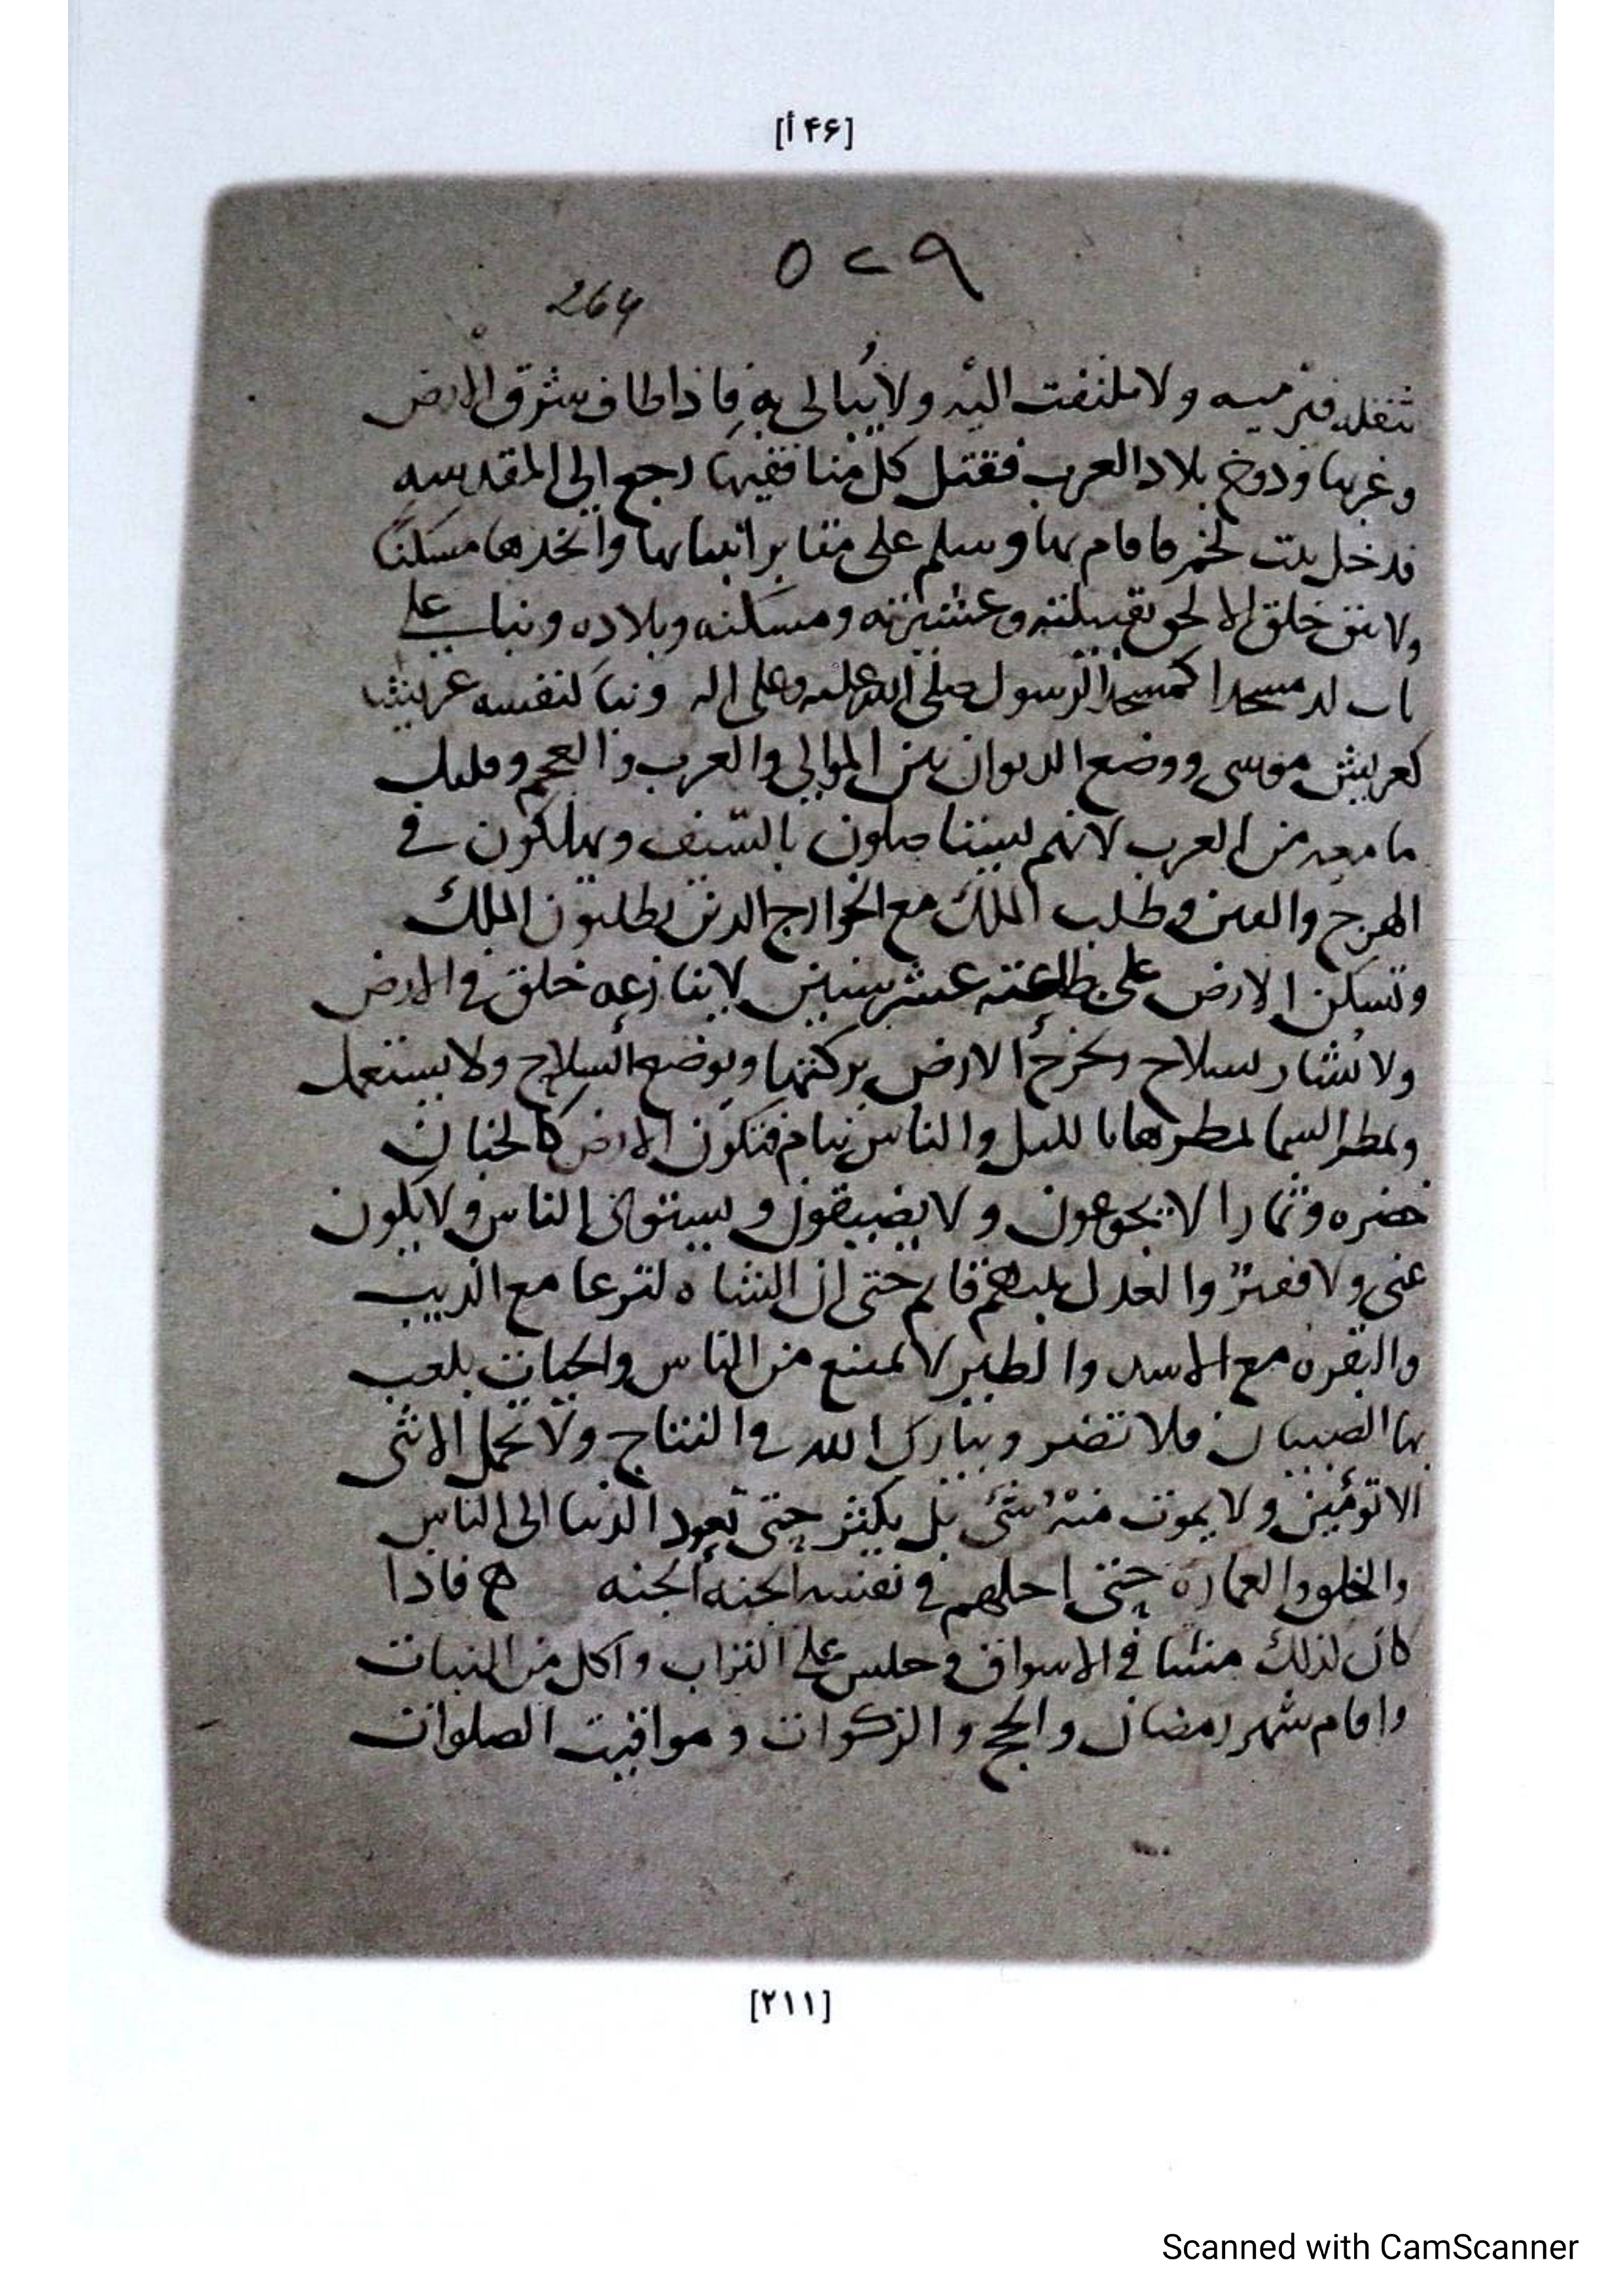 [۴۶ أ]
٥٢٩
264
ثقله فترميه ولا ملتفت اليه ولا يبالى به فاذا طاف شرق الارض
وغربها ودوخ بلاد العرب فقتل كل منافقيها رجع الى المقدسه
فدخل بيت لخم فاقام بها وسلم على مقابر انبيائها واتخذها مسكنا
ولا يبق خلق الا لحق بقبيلته وعشيرته ومسكنه وبلاده وبنا على
باب لد مسجدا كمسجد الرسول صلى الله عليه وعلى اله وبنا لنفسه عريشا
كعريش موسى ووضع الديوان بين الموالى والعرب والعجم وقليل
ما معه من العرب لانهم يستاصلون بالسيف ويهلكون في
الهرج والفتن وطلب الملك مع الخوارج الذين يطلبون الملك
وتسكن الارض على طاعته عشر سنين لا ينازعه خلق في الارض
ولا يشار بسلاح وتخرج الارض بركتها ويوضع السلاح ولا يستعمل
وتمطر السما لمطرها بالليل والناس نيام فتكون الارض كالجنان
خضره وثمارا لا يجوعون ولا يضيقون ويستوى الناس ولا يكون
غنى ولا فقير والعدل بينهم قايم حتى ان الشاه لترعا مع الذيب
والبقره مع الاسد والطير لا تمتنع من الناس والحيات يلعب
بها الصبيان فلا تضر ويبارك الله في النتاج ولا تحمل الانثى
الا توئمين ولا يموت منه شئ بل يكثر حتى تعود الدنيا الى الناس
والخلق والعماره حتى احلهم في نفسه الجنه الجنه ه فاذا
كان لذلك مشا في الاسواق وجلس على التراب واكل من النبات
واقام شهر رمضان والحج والزكوات ومواقيت الصلوات
[۲۱۱]
Scanned with CamScanner